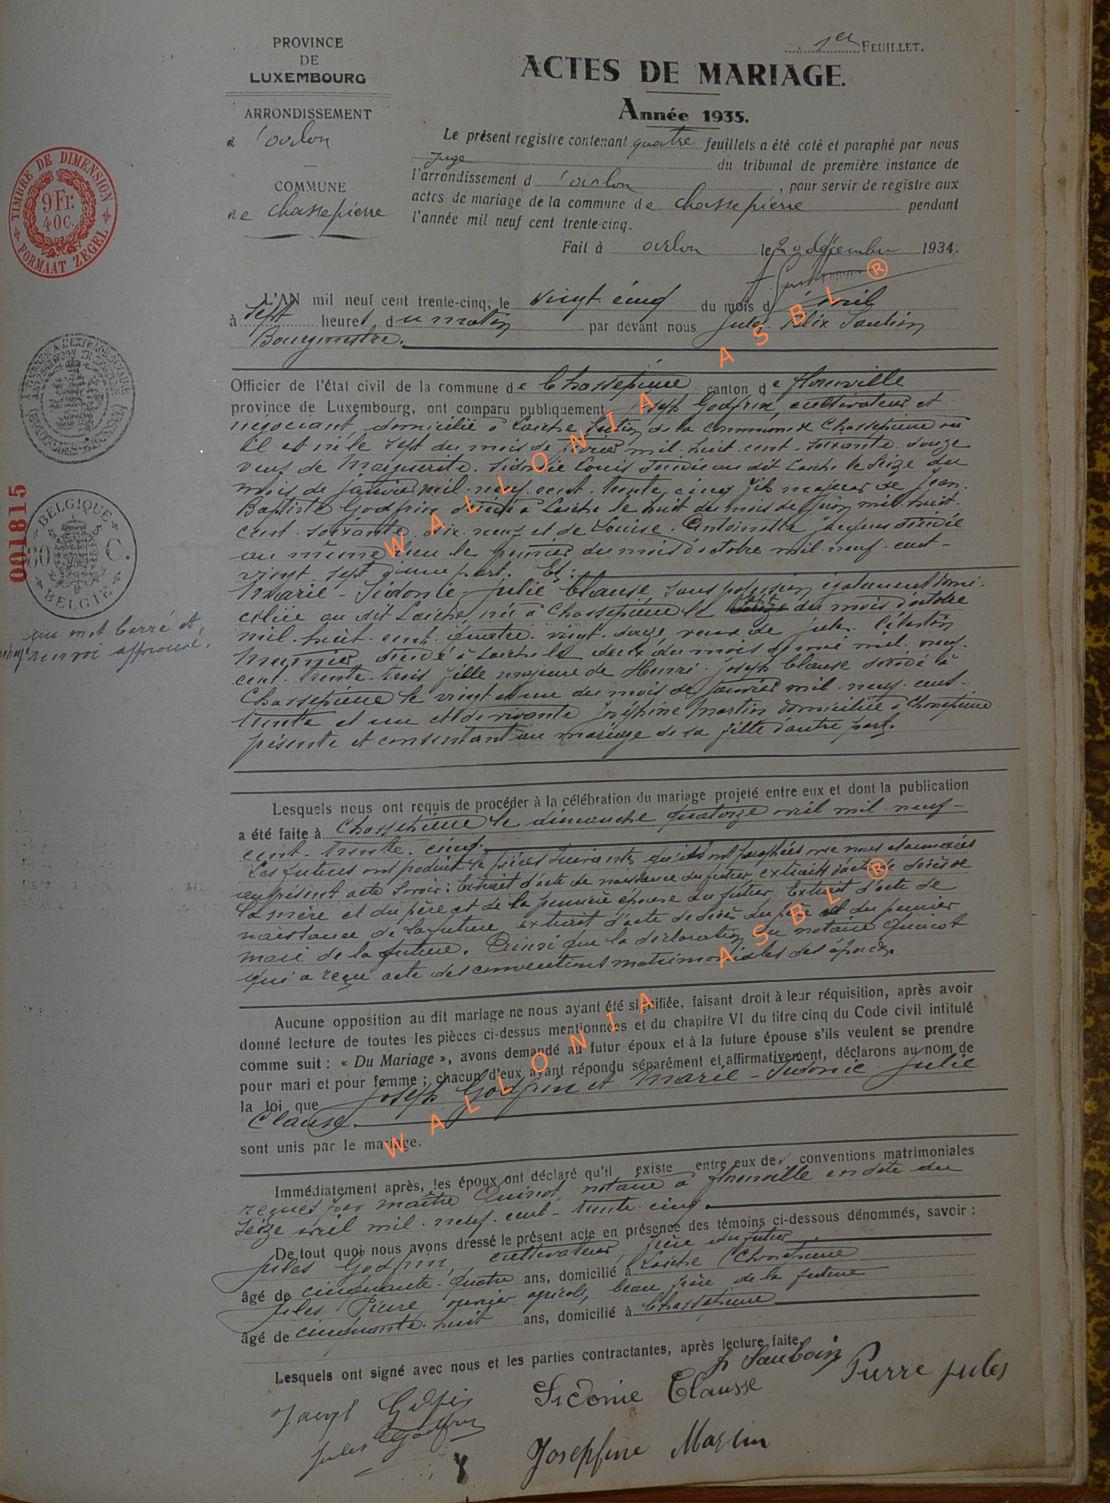 1er FEUILLET.
PROVINCE
DE
LUXEMBOURG
ARRONDISSEMENT
COMMUNE
de Chassepierre
ACTES DE MARIAGE.
Année 1935.
Le présent registre contenant quatre feuillets a été coté et paraphé par nous
juge du tribunal de première instance de
l'arrondissement d , pour servir de registre aux
actes de mariage de la commune de Chassepierre pendant
l'année mil neuf cent trente-cinq.
Fait à le décembre 1934.
TIMBRE DE DIMENSION
9 Fr.
40 C.
FORMAAT ZEGEL
L'AN mil neuf cent trente-cinq, le vingt cinq du mois d avril
à sept heures du matin par devant nous Jules Félix
Bourgmestre.
Officier de l'état civil de la commune de Chassepierre canton de Florenville
province de Luxembourg, ont comparu publiquement Joseph Godfrin, cultivateur et
négociant domicilié à Laiche section de la commune de Chassepierre où
il est né le sept du mois de février mil huit cent soixante douze
veuf de Marguerite Sidonie Louis décédée au dit Laiche le seize du
mois de janvier mil neuf cent trente cinq fils majeur de Jean
Baptiste Godfrin décédé à Laiche le huit du mois de juin mil huit
cent soixante dix neuf et de Louise Antoinette décédée
au même lieu le premier du mois d'octobre mil neuf cent
vingt sept d'une part. Et:
Marie-Sidonie-Julie Clausse sans profession également domi-
ciliée au dit Laiche, née à Chassepierre le du mois d'octobre
mil huit cent quatre vingt douze veuve de Jules Célestin
décédé à Laiche le deux du mois de mai mil neuf
cent trente trois fille majeure de Henri Joseph Clausse décédé à
Chassepierre le vingt et un du mois de janvier mil neuf cent
trente et un et de vivante Joséphine Martin domiciliée à Chassepierre
présente et consentant au mariage de sa fille d'autre part.
001815
BELGIQUE
80 C.
BELGIË
un mot barré et
renvoi approuvé.
Lesquels nous ont requis de procéder à la célébration du mariage projeté entre eux et dont la publication
a été faite à Chassepierre le dimanche quatorze avril mil neuf
cent trente cinq.
Les futurs ont produit les pièces suivantes qu'ils ont paraphées avec nous et annexées
au présent acte savoir: Extrait d'acte de naissance du futur, extraits d'acte de décès de
la mère et du père et de la première épouse du futur. Extrait d'acte de
naissance de la future, extrait d'acte de décès du père et du premier
mari de la future. Ainsi que la déclaration du notaire Quinot
qui a reçu acte des conventions matrimoniales des époux.
Aucune opposition au dit mariage ne nous ayant été signifiée, faisant droit à leur réquisition, après avoir
donné lecture de toutes les pièces ci-dessus mentionnées et du chapitre VI du titre cinq du Code civil intitulé
comme suit : « Du Mariage », avons demandé au futur époux et à la future épouse s'ils veulent se prendre
pour mari et pour femme ; chacun d'eux ayant répondu séparément et affirmativement, déclarons au nom de
la loi que Joseph Godfrin et Marie-Sidonie Julie
Clausse.
sont unis par le mariage.
Immédiatement après, les époux ont déclaré qu'il existe entre eux des conventions matrimoniales
reçues par maître Quinot, notaire à Florenville en date du
seize avril mil neuf cent trente cinq.
De tout quoi nous avons dressé le présent acte en présence des témoins ci-dessous dénommés, savoir :
Jules Godfrin, cultivateur, frère du futur
âgé de cinquante-quatre ans, domicilié à Laiche Chassepierre
Jules Pierre ouvrier agricole, beau frère de la future
âgé de cinquante huit ans, domicilié à Chassepierre
Lesquels ont signé avec nous et les parties contractantes, après lecture faite.
Sidonie Clausse
Pierre Jules
Jules Godfrin
Joséphine Martin
WALLONIA ASBL ®
WALLONIA ASBL ®